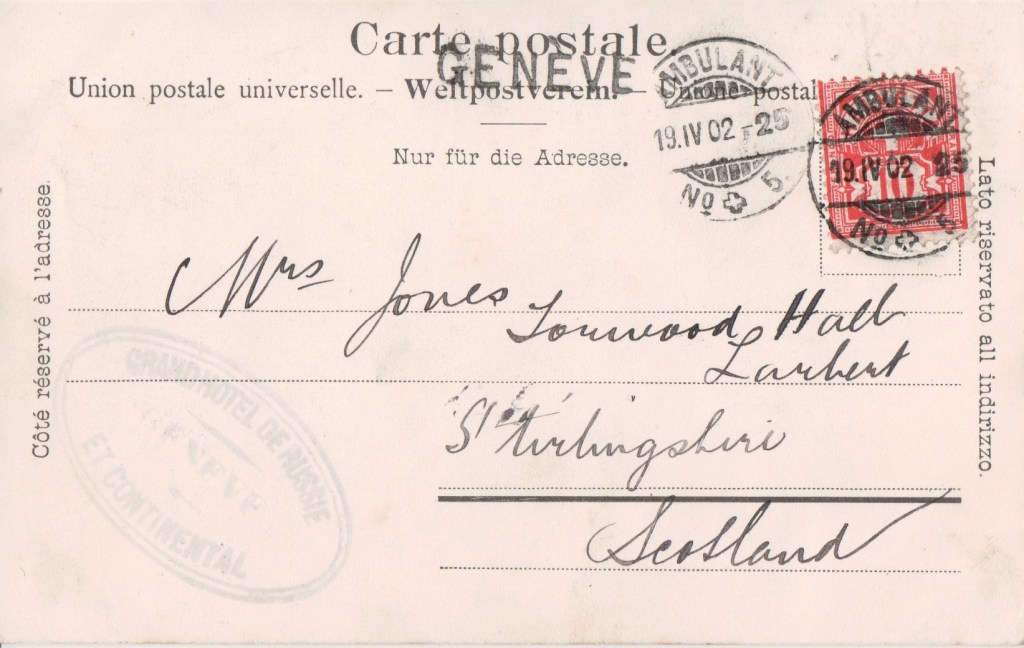 Carte postale.
GENÈVE
Union postale universelle. – Weltpostverein. – Unione postal
Nur für die Adresse.
AMBULANT
19.IV 02 - 25
No 5.
AMBULANT
19.IV 02 25
No 5
10
Côté réservé à l'adresse.
Lato riservato all indirizzo.
Mrs Jones
Torwood Hall
Larbert
Stirlingshire
Scotland
GRAND HOTEL DE RUSSIE
GENEVE
ET CONTINENTAL